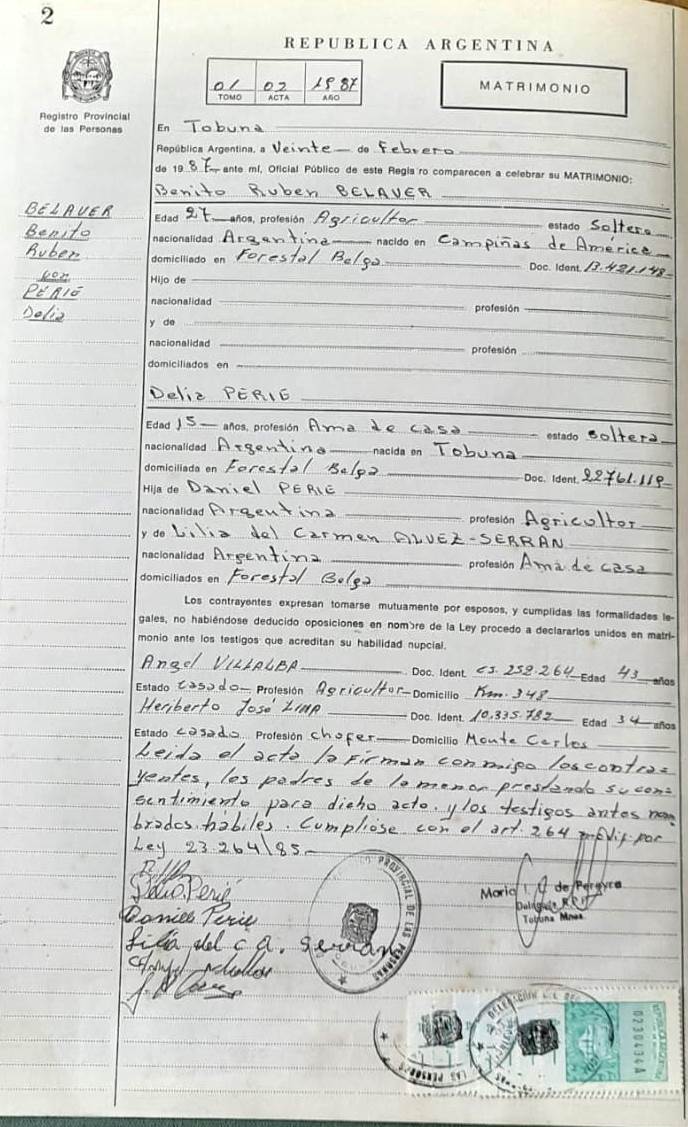 2
REPUBLICA ARGENTINA
01 02 1987
TOMO ACTA AÑO
MATRIMONIO
Registro Provincial
de las Personas
En Tobuna
República Argentina, a Veinte de Febrero
de 1987 ante mí, Oficial Público de este Registro comparecen a celebrar su MATRIMONIO:
Benito Ruben BELAVER
BELAVER
Benito
Ruben
con
PERIÉ
Delia
Edad 27 años, profesión Agricultor estado Soltero
nacionalidad Argentina nacido en Campiñas de América
domiciliado en Forestal Belga Doc. Ident. 13.421.148
Hijo de
nacionalidad profesión
y de
nacionalidad profesión
domiciliados en
Delia PERIÉ
Edad 15 años, profesión Ama de casa estado Soltera
nacionalidad Argentina nacida en Tobuna
domiciliada en Forestal Belga Doc. Ident. 22761.119
Hija de Daniel PERIÉ
nacionalidad Argentina profesión Agricultor
y de Lilia del Carmen ALVEZ-SERRAN
nacionalidad Argentina profesión Ama de casa
domiciliados en Forestal Belga
Los contrayentes expresan tomarse mutuamente por esposos, y cumplidas las formalidades le-
gales, no habiéndose deducido oposiciones en nombre de la Ley procedo a declararlos unidos en matri-
monio ante los testigos que acreditan su habilidad nupcial.
Angel VILLALBA Doc. Ident. 259.264 Edad 43 años
Estado Casado Profesión Agricultor Domicilio Km. 348
Heriberto José LIMA Doc. Ident. 10.335.782 Edad 34 años
Estado Casado Profesión chofer Domicilio Monte Carlos
Leida el acta la Firman conmigo los contra-
yentes, los padres de la menor prestando su con-
sentimiento para dicho acto. y los testigos antes nom-
brados hábiles. Cumpliose con el art. 264 modif. por
Ley 23.264/85.-
Delia Perié
Daniel Perie
Lilia del C A. Serran
de Pereyra
Delegada R.P.P.
Tobuna Mnes.
PROVINCIAL DE LAS PERSONAS
LAS PERSONAS
REPUBLICA ARGENTINA
02304344